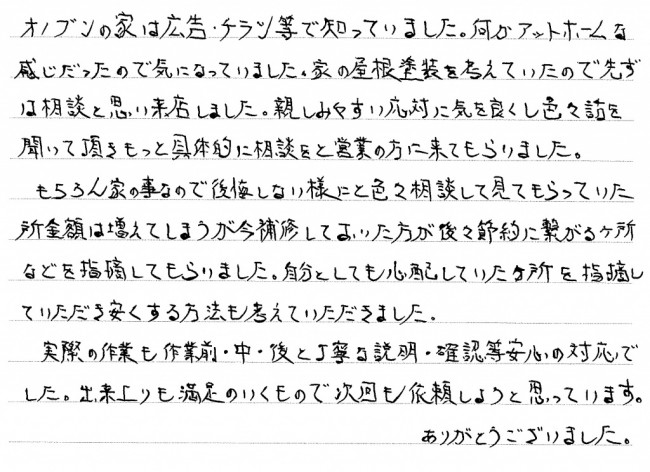 オノブンの家は広告・チラシ等で知っていました。何かアットホームな
感じだったので気になっていました。家の屋根塗装を考えていたので先ず
は相談と思い来店しました。親しみやすい応対に気を良くし色々話を
聞いて頂きもっと具体的に相談をと営業の方に来てもらいました。
もちろん家の事なので後悔しない様にと色々相談して見てもらっていた
所金額は増えてしまうが今補修しておいた方が後々節約に繋がるヶ所
などを指摘してもらいました。自分としても心配していたヶ所を指摘し
ていただき安くする方法も考えていただきました。
実際の作業も作業前・中・後と丁寧な説明・確認等安心の対応で
した。出来上りも満足のいくもので次回も依頼しようと思っています。
ありがとうございました。